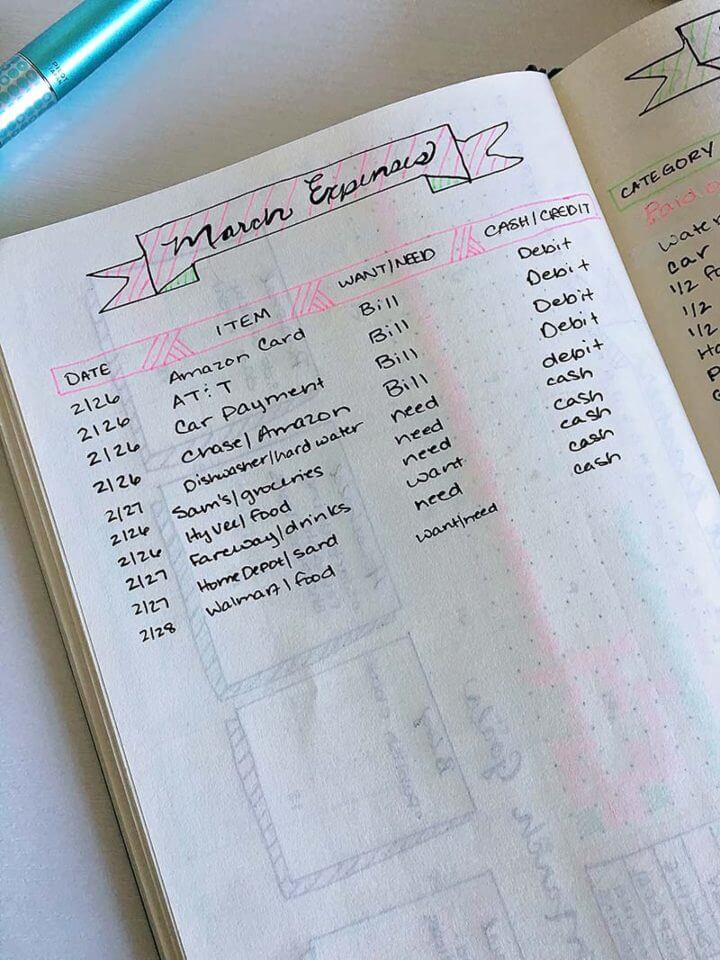 PILOT
JAPAN
March Expenses
DATE ITEM WANT/NEED CASH/CREDIT
2/26 Amazon Card Bill Debit
2/26 AT:T Bill Debit
2/26 Car Payment Bill Debit
2/26 Chase/Amazon Bill Debit
2/27 Dishwasher/hard water need debit
2/26 Sam's/groceries need cash
2/26 HyVee/food need cash
2/27 Fareway/drinks want cash
2/27 HomeDepot/sand need cash
2/28 Walmart/food want/need cash
CATEGORY
Paid
water
car
1/2
1/2
1/2